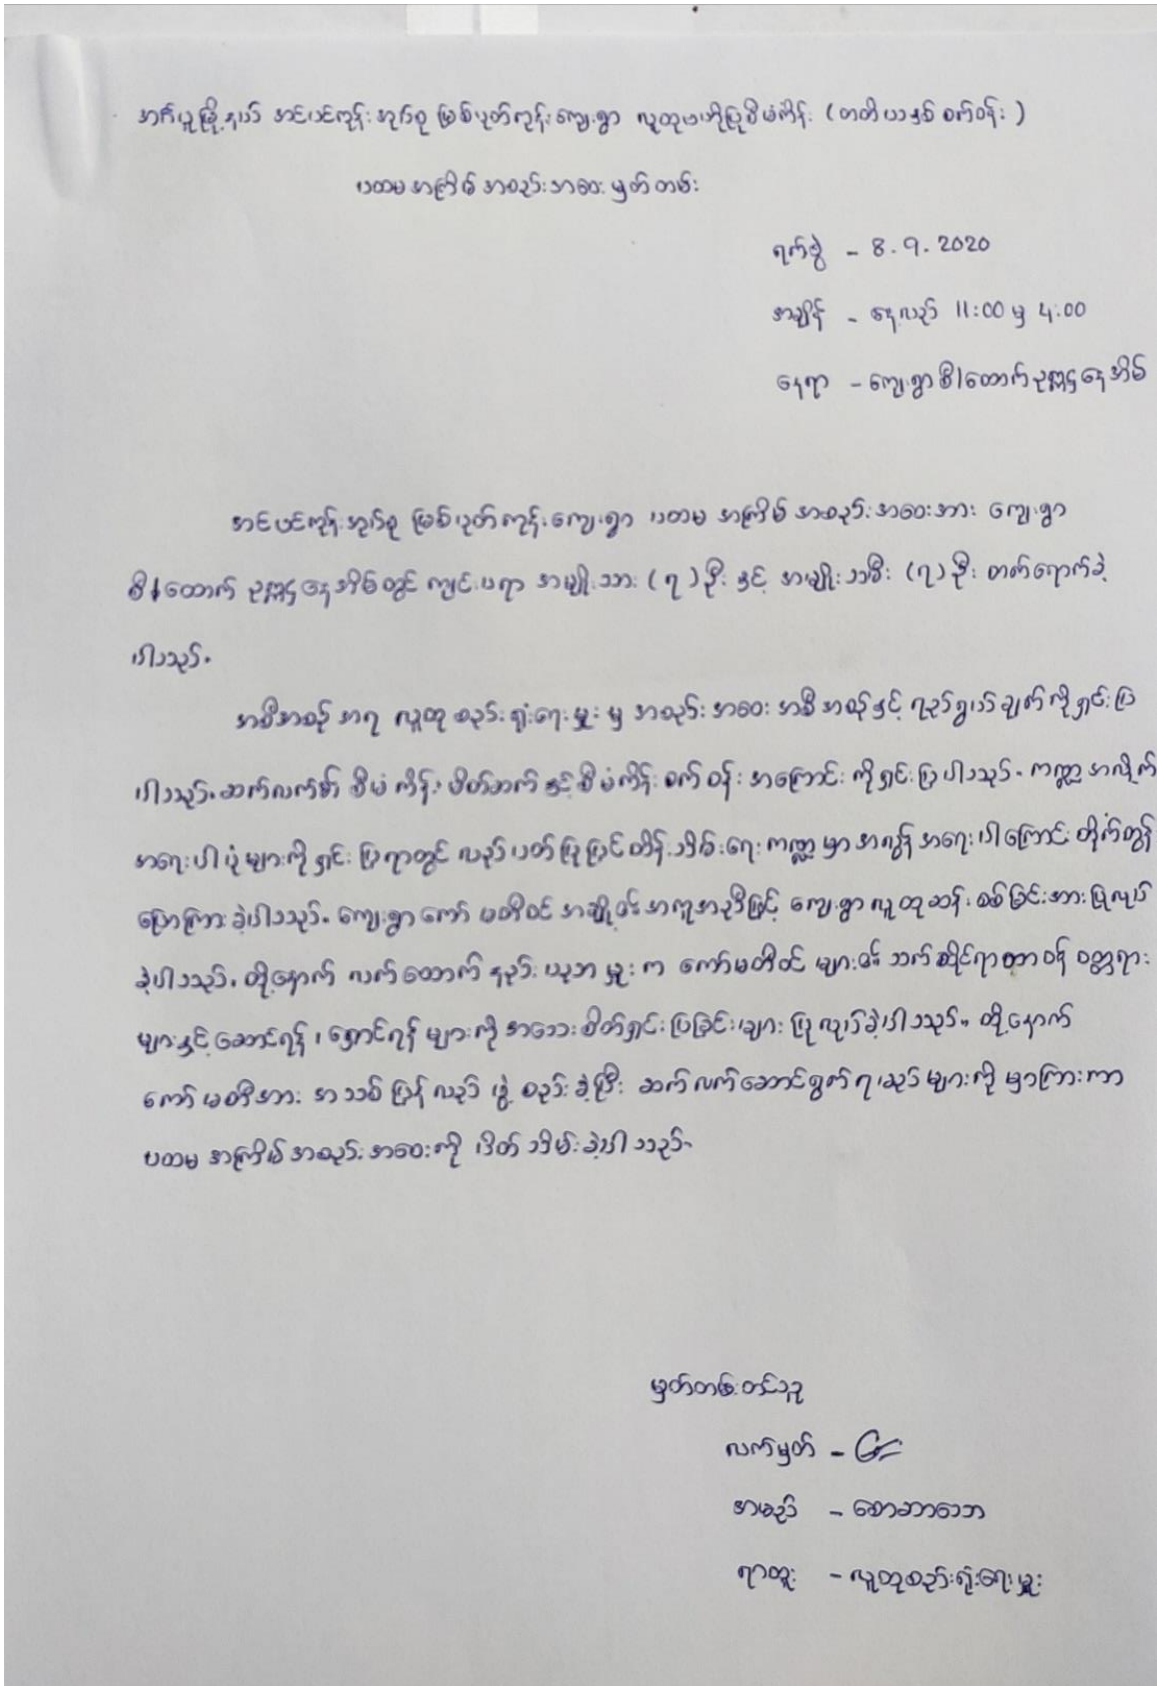 အင်္ဂပူမြို့နယ် အင်ပင်ကုန်းအုပ်စု မြစ်ပုတ်ကုန်းကျေးရွာ လူထုဗဟိုပြုစီမံကိန်း (တတိယနှစ်စက်ဝန်း)
ပထမအကြိမ်အစည်းအဝေးမှတ်တမ်း
ရက်စွဲ - 8.9.2020
အချိန် - နေ့လည် 11:00 မှ 4:00
နေရာ - ကျေးရွာစီ/ထောက်ဥက္ကဌနေအိမ်
အင်ပင်ကုန်းအုပ်စု မြစ်ပုတ်ကုန်းကျေးရွာ ပထမ အကြိမ် အစည်းအဝေးအား ကျေးရွာ
စီ/ထောက် ဥက္ကဌနေအိမ်တွင် ကျင်းပရာ အမျိုးသား (၇) ဦး နှင့် အမျိုးသမီး (၇) ဦး တက်ရောက်ခဲ့
ပါသည်။
အစီအစဉ် အရ လူထုစည်းရုံးရေးမှူး မှ အစည်းအဝေး အစီအစဉ်နှင့် ရည်ရွယ်ချက်ကိုရှင်းပြ
ပါသည်။ ဆက်လက်၍ စီမံကိန်းမိတ်ဆက် နှင့် စီမံကိန်းစက်ဝန်းအကြောင်းကိုရှင်းပြပါသည်။ ကဏ္ဍအလိုက်
အရေးပါပုံများကိုရှင်းပြရာတွင် လည်ပတ်ပြုပြင်ထိန်းသိမ်းရေးကဏ္ဍမှာအလွန်အရေးပါကြောင်း တိုက်တွန်း
ပြောကြားခဲ့ပါသည်။ ကျေးရွာကော်မတီဝင်အချို့၏ အကူအညီဖြင့် ကျေးရွာလူထုဆန်းစစ်ခြင်းအားပြုလုပ်
ခဲ့ပါသည်။ ထို့နောက် လက်ထောက်နည်းပညာမှူးက ကော်မတီဝင်များ၏ သက်ဆိုင်ရာတာဝန် ဝတ္တရား
များနှင့်ဆောင်ရန်၊ ရှောင်ရန်များကို အသေးစိတ်ရှင်းပြခြင်းများ ပြုလုပ်ခဲ့ပါသည်။ ထို့နောက်
ကော်မတီအား အသစ်ပြန်လည်ဖွဲ့စည်းခဲ့ပြီး ဆက်လက်ဆောင်ရွက်ရမည်များကို မှာကြားကာ
ပထမအကြိမ်အစည်းအဝေးကို ပိတ်သိမ်းခဲ့ပါသည်။
မှတ်တမ်းတင်သူ
လက်မှတ် -
အမည် - စောဆာသော
ရာထူး - လူထုစည်းရုံးရေးမှူး